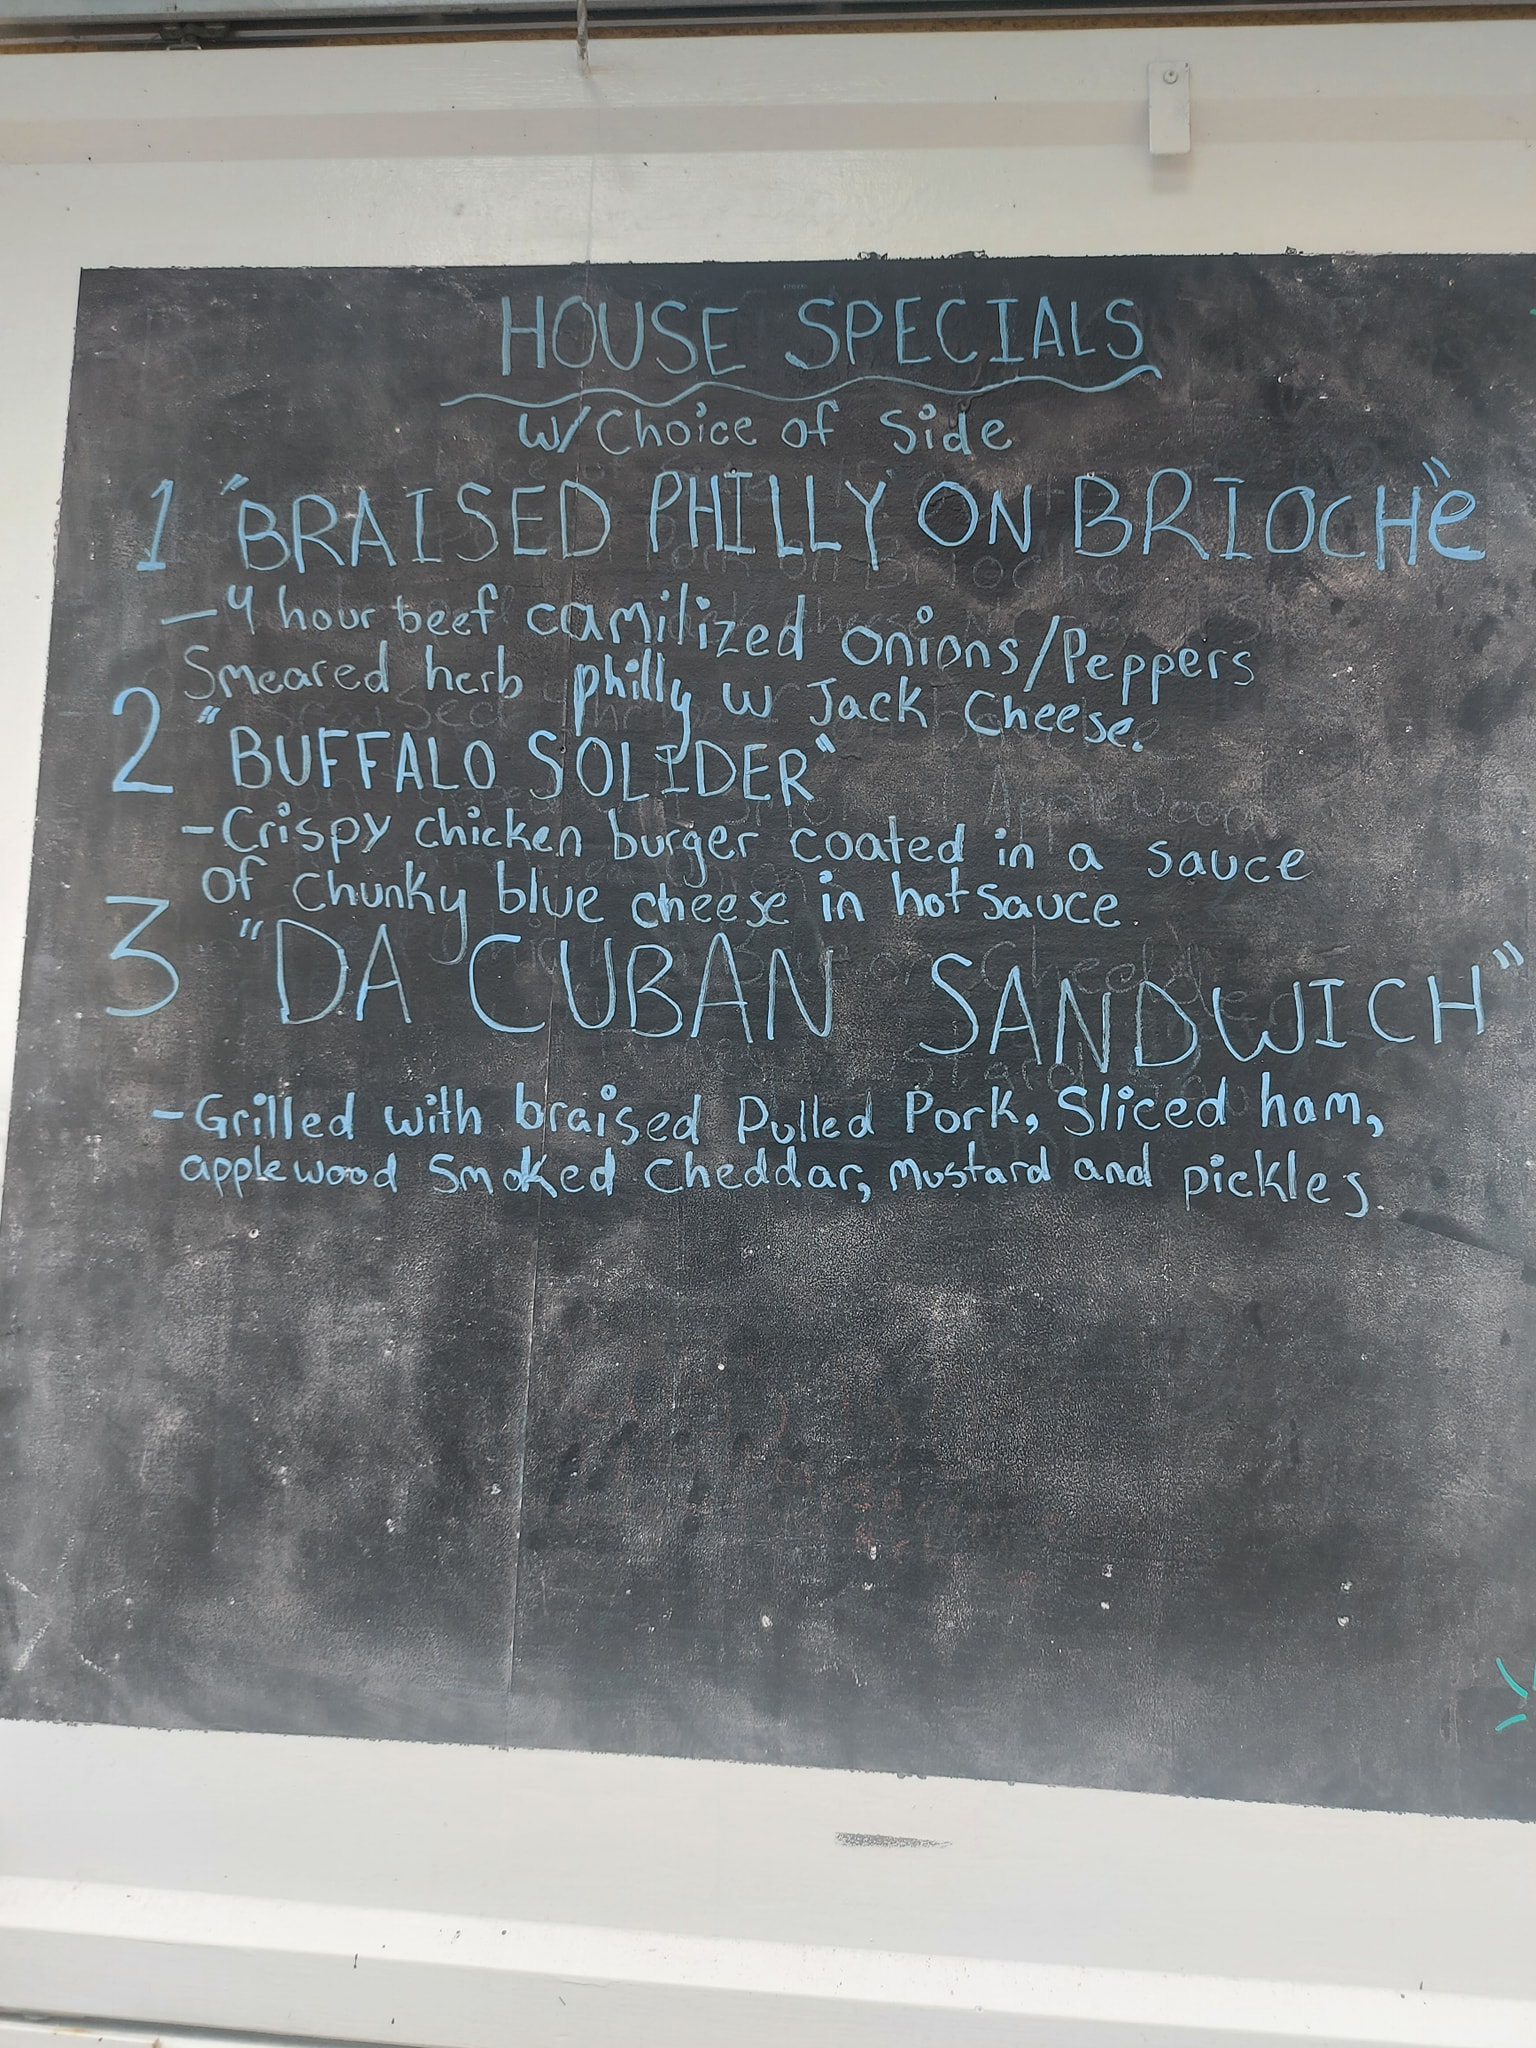 HOUSE SPECIALS
W/Choice of Side
1 "BRAISED PHILLY ON BRIOCHe"
-4 hour beef camilized onions/Peppers
Smeared herb philly w Jack Cheese.
2 "BUFFALO SOLIDER"
-Crispy chicken burger coated in a sauce
of Chunky blue cheese in hot sauce.
3 "DA CUBAN SANDWICH"
-Grilled with braised Pulled Pork, Sliced ham,
applewood Smoked Cheddar, Mustard and pickles.